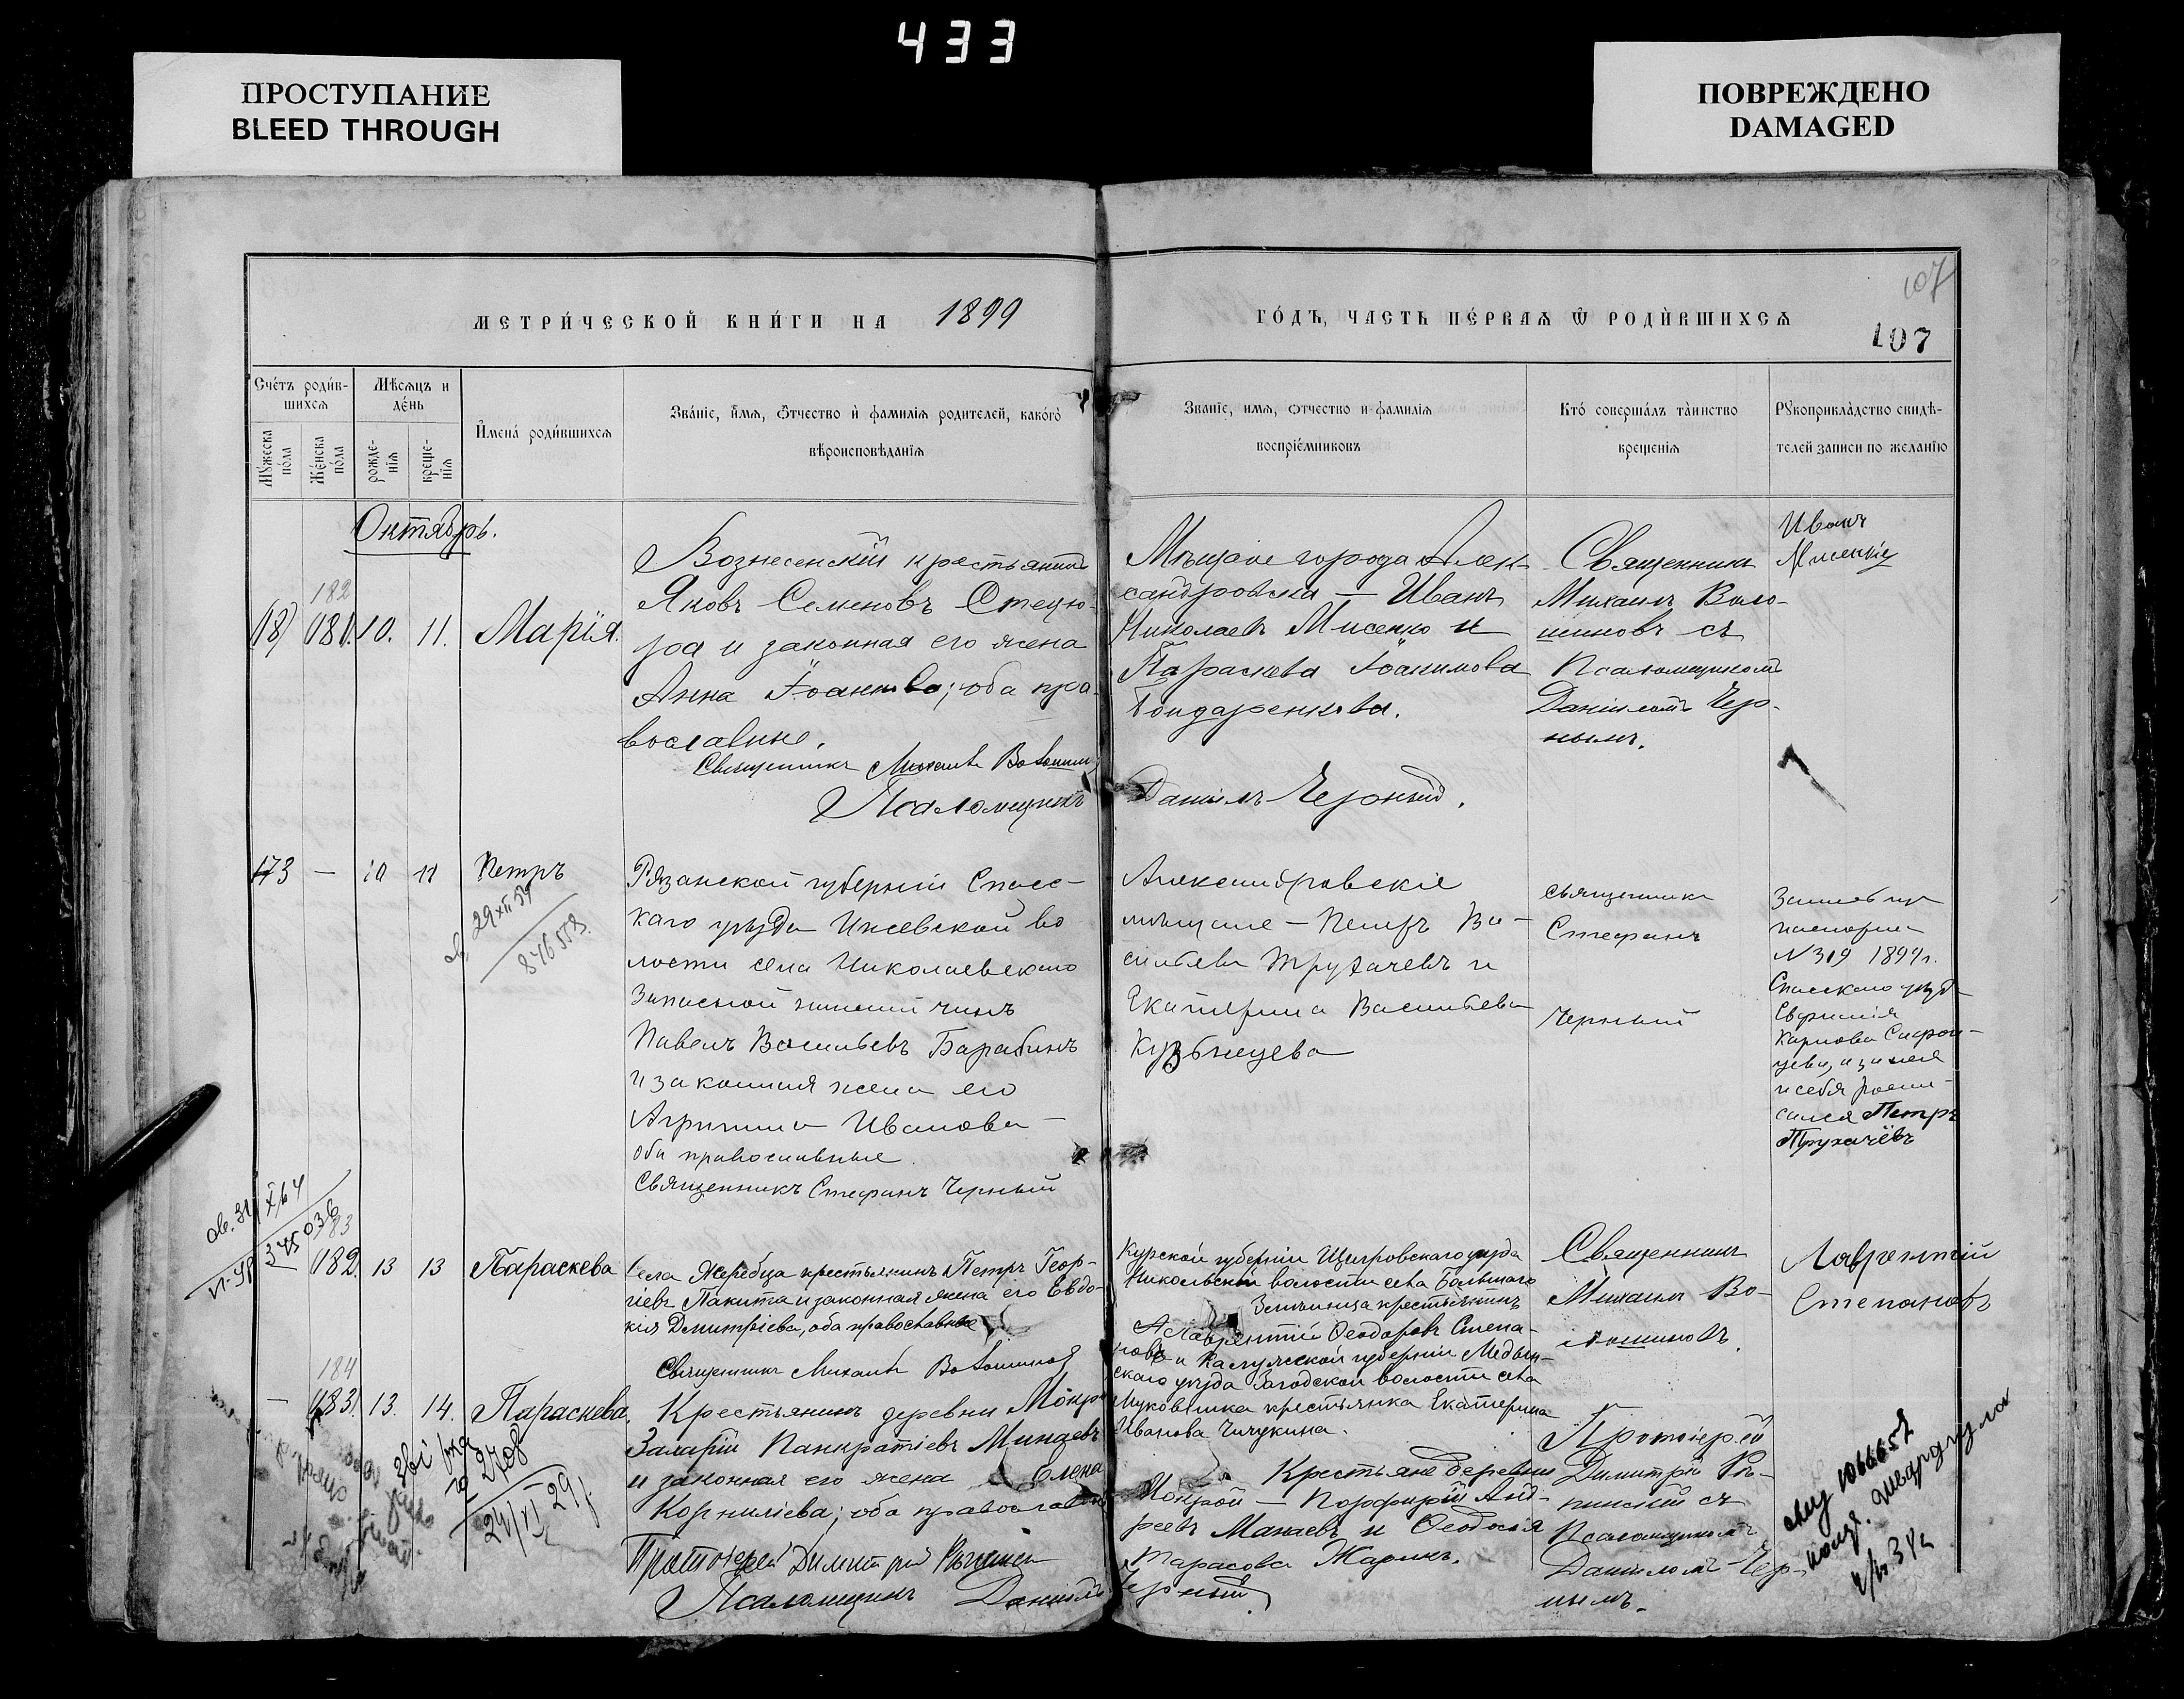 433
ПРОСТУПАНИЕ
BLEED THROUGH
ПОВРЕЖДЕНО
DAMAGED
МЕТРИ́ЧЕСКОЙ КНИ́ГИ НА 1899
ГО́ДЪ, ЧАСТЬ ПЕ́РВАѦ Ѿ РОДИ́ВШИХСѦ
107
107
Сче́тъ роди́в-
шихсѧ
Мꙋ́жеска по́ла
Же́нска по́ла
Мѣ́сѧцъ и
де́нь
рожде-
нїѧ
креще-
нїѧ
И҆мена̀ роди́вшихсѧ
Зва́нїе, и҆́мѧ, ѻ҆́тчество и҆ фами́лїѧ роди́телей, како́гѡ
вѣроисповѣ́данїѧ
Зва́нїе, имѧ, ѻтчество и фами́лїѧ
воспрїе́мниковъ
Кто̀ соверша́лъ та́инство
креще́нїѧ
Рꙋкоприкла́дство свидѣ́-
телей записи по жела́нїю
Октябрь.
182
181. 10. 11. Марія.
Вознесенскій крестьянинъ
Яковъ Семеновъ Стецю-
ра и законная его жена
Анна Іоаннова; оба пра-
вославные.
Священникъ Михаилъ Волошинов
Псаломщикъ
Мѣщане города Алек-
сандровска — Иванъ
Николаевъ Мисенко и
Параскева Іоакимова
Бондаренкова.
Даніилъ Черный.
Священникъ
Михаилъ Воло-
шиновъ съ
Псаломщикомъ
Даніиломъ Чер-
нымъ.
Иванъ
Мисенко
173 — 10 11 Петръ
29 XII 39
846558.
Рязанской губерніи Спасс-
каго уѣзда Ижевской во
лости села Николаевскаго
Запасной нижній чинъ
Павелъ Васильевъ Барабинъ
и законная жена его
Агрипина Иванова —
оба православные.
Священникъ Стефанъ Черный
Александровскіе
мѣщане — Петръ Ва-
сильевъ Трухачевъ и
Екатерина Васильева
Кузьнецева
Священникъ
Стефанъ
Черный
паспорта
№ 309 1899 г.
Спасскаго уѣзд-
и себя роспи-
сался Петръ
Трухачёвъ
183
182. 13 13 Параскева
Села Жеребца крестьянинъ Петръ Геор-
гіевъ Пакита и законная жена его Евдо-
кія Димитріева, оба православные
Священникъ Михаилъ Волошиновъ
Курской губерніи Щигровскаго уѣзда
Никольской волости села Большаго
Змѣинца крестьянинъ
Лаврентій Ѳеодоровъ Степа-
новъ и Калужской губерніи Медын-
скаго уѣзда Загодской волости села
Муковнина крестьянка Екатерина
Иванова Чичукина.
Священникъ
Михаилъ Во-
лошиновъ.
Лаврентій
Степановъ
184
— 183. 13. 14. Параскева.
Крестьянинъ деревни Мокр
Панкратіевъ Минаевъ
и законная его жена Елена
Корниліева; оба православн
Протоіерей Димитрій
Псаломщикъ Даніилъ
Крестьяне деревни
Мокрой — Порфирій Анд-
реевъ Манаевъ и Ѳеодосія
Тарасова Жарикъ.
Черный
Протоіерей
Димитрій
съ
Псаломщикомъ
Даніиломъ Чер-
нымъ.
24/VI 29 г.